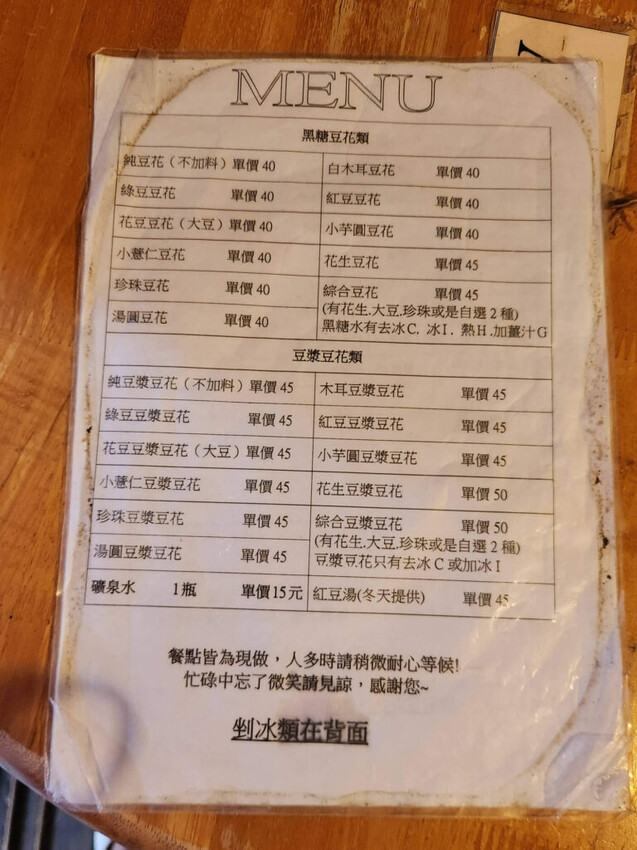 MENU
黑糖豆花類
純豆花（不加料）單價 40
白木耳豆花 單價 40
綠豆豆花 單價 40
紅豆豆花 單價 40
花豆豆花（大豆）單價 40
小芋圓豆花 單價 40
小薏仁豆花 單價 40
花生豆花 單價 45
珍珠豆花 單價 40
綜合豆花 單價 45
(有花生.大豆.珍珠或是自選 2 種)
黑糖水有去冰C. 冰I. 熱H.加薑汁G
湯圓豆花 單價 40
豆漿豆花類
純豆漿豆花（不加料）單價 45
木耳豆漿豆花 單價 45
綠豆豆漿豆花 單價 45
紅豆豆漿豆花 單價 45
花豆豆漿豆花（大豆）單價 45
小芋圓豆漿豆花 單價 45
小薏仁豆漿豆花 單價 45
花生豆漿豆花 單價 50
珍珠豆漿豆花 單價 45
綜合豆漿豆花 單價 50
(有花生.大豆.珍珠或是自選 2 種)
豆漿豆花只有去冰 C 或加冰 I
湯圓豆漿豆花 單價 45
礦泉水 1瓶 單價15元
紅豆湯(冬天提供) 單價 45
餐點皆為現做，人多時請稍微耐心等候!
忙碌中忘了微笑請見諒，感謝您~
剉冰類在背面